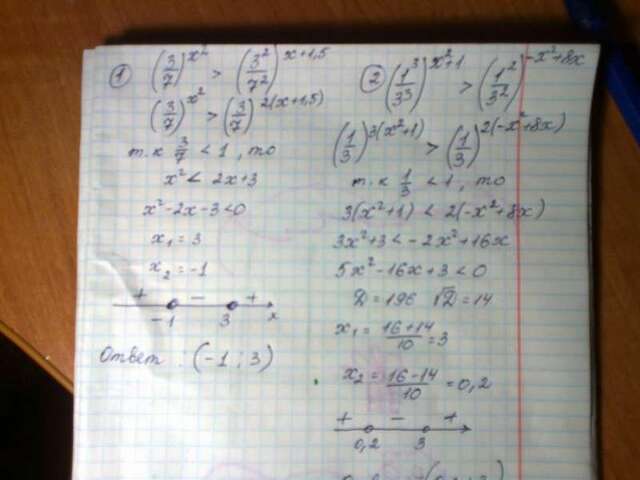 ① (3/7)^x² > (3²/7²)^x+1,5
(3/7)^x² > (3/7)^2(x+1,5)
т.к 3/7 < 1, то
x² < 2x+3
x²-2x-3<0
x₁ = 3
x₂ = -1
+ - +
-1 3 x
Ответ : (-1 ; 3)
② (1³/3³)^x²+1 > (1²/3²)^-x²+8x
(1/3)^3(x²+1) > (1/3)^2(-x²+8x)
т.к 1/3 < 1, то
3(x²+1) < 2(-x²+8x)
3x²+3 < -2x²+16x
5x²-16x+3<0
D=196 √D=14
x₁ = 16+14/10 = 3
x₂ = 16-14/10 = 0,2
+ - +
0,2 3